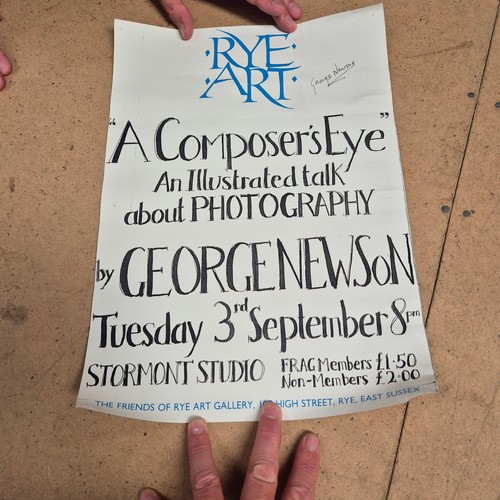 ·RYE·
·ART·
George Newson
"A Composer's Eye"
An Illustrated talk
about PHOTOGRAPHY
by GEORGE NEWSON
Tuesday 3rd September 8pm
STORMONT STUDIO
FRAG Members £1·50
Non-Members £2·00
THE FRIENDS OF RYE ART GALLERY, HIGH STREET, RYE, EAST SUSSEX